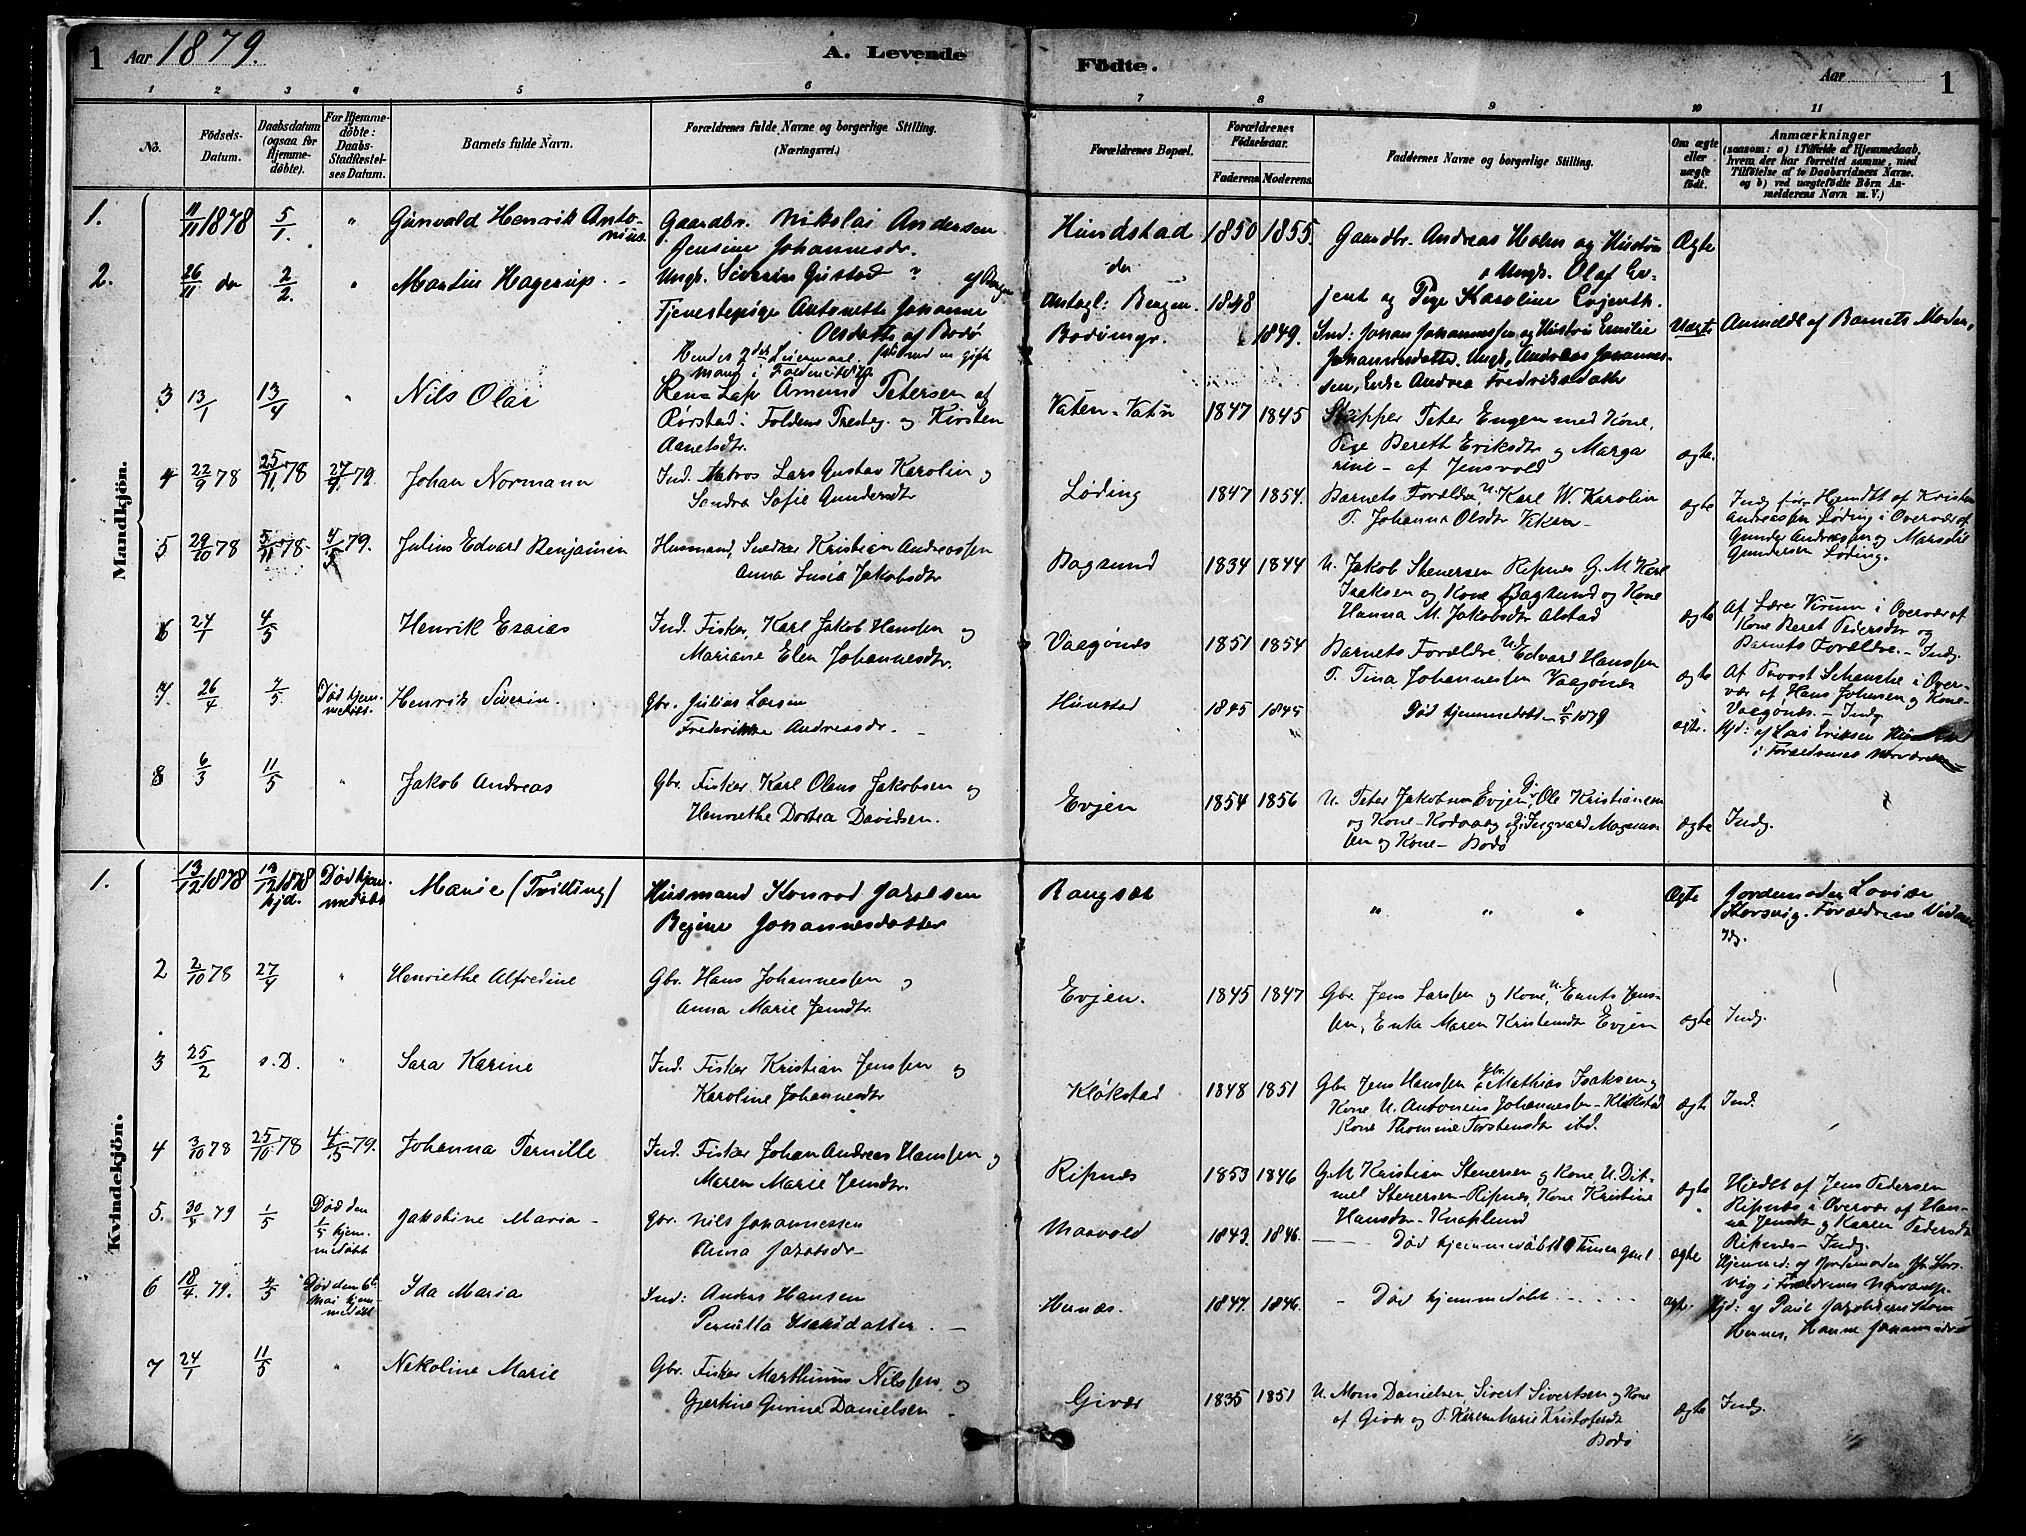 1 Aar 1879. A. Levende Födte. Aar 1
1 2 3 4 5 6 7 8 9 10 11
No.
Födsels-Datum.
Daabsdatum (ogsaa for Hjemmedöbte).
For Hjemmedöbte: Daabs-Stadfæstelses Datum.
Barnets fulde Navn.
Forældrenes fulde Navne og borgerlige Stilling. (Næringsvei.)
Forældrenes Bopæl.
Forældrenes Födselsaar.
Faderens Moderens
Faddernes Navne og borgerlige Stilling.
Om ægte eller uægte födt.
Anmærkninger
(saasom: a) i Tilfælde af Hjemmedaab, hvem der har forrettet samme, med Tilföielse af to Daabsvidners Navne. og b) ved uægtefödte Börn Anmelderens Navn m. V.)
Mandkjön.
1. 11/11 1878 5/1. " Günvald Henrik Antonius
Gaardbr. Nikolai Andersen
Jensine Johannesdr.
Hundstad 1850 1855.
Gaardbr. Andreas Holm og Hustru
Ungk. Olaf Evjent og Pige Karoline Evjenth.
Ægte
2. 26/11 do 2/2. " Martin Hagerup
Ungk. Severin Gustad af Bergen
Tjenestepige Antonette Johanne
Olsdatter af Bodø
Hendes 2det Leiermaal
Antagl: Bergen 1848
1849.
Ind: Johan Johannessen og Hustru Emilie
Johannesdatter. Ungk. Andreas Johannessen, Enke Andrea Fredriksdatter
Uægte Anmeldt af Barnets Moder
3 13/1 13/4 " Nils Olai
Amund Petersen af
Rørstad i Foldens Præsteg. og Kirsten
Vaten - Vatn 1847 1845
Skipper Peter Engen med Kone,
Pige Bereth Eriksdtr og Margarine - af Jensvold
ægte.
4 22/9 78 25/11 78 27/4 79. Johan Normann
Ind. Matros Lars Gustav Karolin og
Sandra Sofie Gundersdtr
Løding 1847 1854.
Barnets Forældre U. Karl W. Karolin
P. Johanna Olsdtr
ægte
Indg. før. Hjemdt af Kristen
Andreassen Løding i Overvær af
Gunder Andreassen og
Gundersen Løding.
5 29/10 78 5/11 78. 4/5 79. Julius Edvard Benjamin
Husmand, Snedker Kristian Andreassen
Anna Lusia Jakobsdtr
Bagsund 1834 1844
U. Jakob Stenersen Ripnes G. M Karl
Isaksen og Kone Bagsund og Kone
Hanna M. Jakobsdtr Alstad
ægte
Af Lærer Virum i Overvær af
Kone Beret Pedersdtr og
Barnets Forældre. - Indg.
6 24/1 4/5 Henrik Esaias
Ind. Fisker, Karl Jakob Hanssen og
Mariane Elen Johannesdtr.
Vaagønes 1851 1854
Barnets Forældre U. Edvard Hanssen
P. Tina Johannessen Vaagønes
ægte
Af Provst Schanche i Overvær af Hans Johnsen og Kone
Vaagønes. - Indg
7 26/4 7/5 Død hjemmedøbt. Henrik Siverin.
Gbr. Julius Larsen
Frederikke Andreasdr.
Hunstad 1845 1845
Død hjemmedøbt 8/5 1879
ægte.
Hjd: af Lars Eriksen
i Forældrenes Nærværelse
8 6/3 11/5 " Jakob Andreas
Gbr. Fisker Karl Olaus Jakobsen og
Henrethe Dortea Davidsen.
Evjen 1854 1856
U. Peter Jakobsen Evjen, G. Ole Kristiansen
og Kone - Kodvaag og Ingvard Magnussen og Kone - Bodø
ægte Indg.
Kvindekjön.
1. 13/12 1878 13/12 1878 hjd. Død hjemmedøbt Marie (Tvilling)
Husmand Konrad Jakobsen
Regine Johannesdatter
Rangsæt " " "
Ægte
Jordemoder Lovise
Storvig. Forældrene Vidner
Idg.
2 2/10 78 27/4 " Henriethe Alfredine
Gbr. Hans Johannessen og
Anna Marie Jensdtr.
Evjen. 1845 1847
Gbr. Jens Larssen og Kone, U. Eants Jenssen, Enke Maren Kristensdtr Evjen
ægte Indg.
3 25/2 s. D. " Sara Karine
Ind. Fisker Kristian Jenssen og
Karoline Johannesdtr
Kløkstad 1848 1851
Gbr Jens Hanssen Gbr. Mathias Isaksen og
Kone U. Antonius Johannessen - Kløkstad
Kone Thomine Torstensdtr ibd.
ægte Ind.
4 3/10 78 25/10 78 4/5 79. Johanna Pernille
Ind. Fisker Johan Andreas Hanssen og
Maren Marie Jensdtr.
Ripnæs 1853 1846
G. M Kristian Stenersen og Kone U. Ditmel Stenersen - Ripnæs, Kone Kristine
Hansdtr - Knaplund
ægte
Hjdt af Jens Pedersen
Ripnes i Overvær af Hanna Jensdtr og Karen Pedersdtr
Ripnes - Indg.
5. 30/4 79 1/5 Død den 1/5 hjemmedøbt Jakobine Maria -
Gbr. Nils Johannessen
Anna Jakobsdr.
Maavold 1843. 1846.
Død hjemmedøbt
ægte
Hjemmed: af Jordemoder Storvig i Forældrenes Nærværelse.
6 18/4. 79. 4/5 Død den 6te Mai hjemmedøbt Ida Maria
Ind: Anders Hansen
Pernilla Isaksdatter. -
Hernæs. 1847. 1846.
- Død hjemmedøbt - - -
ægte.
Hjd: af Paul Jakobsens Kone
Hernes, Hanna Johannesdr
7 24/1 11/5 " Nekoline Marie
Gbr. Fisker Marthinus Nilssen og
Gjertine Gurine Danielsen -
Givær 1835 1851
U. Mons Danielsen, Sivert Sivertsen og Kone
af Givær og P. Karen Marie Kristofersdtr
Bodø
ægte Indg.